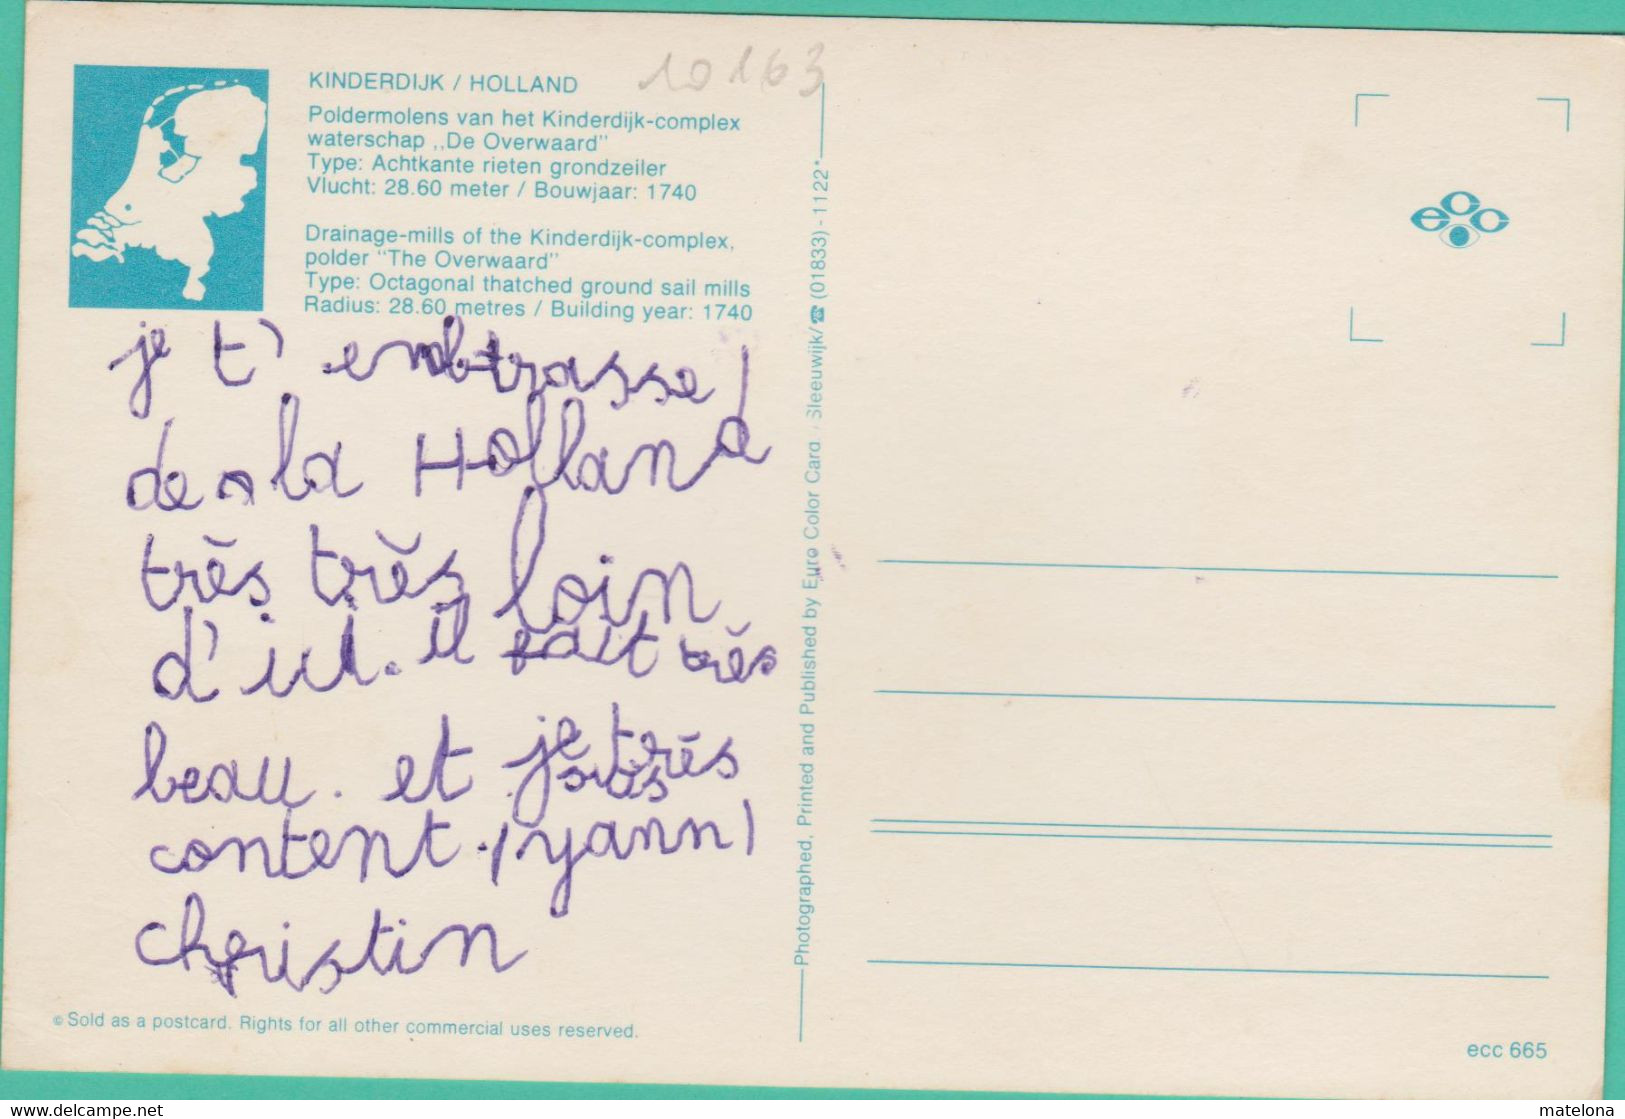 10163
KINDERDIJK / HOLLAND
Poldermolens van het Kinderdijk-complex
waterschap ,,De Overwaard"
Type: Achtkante rieten grondzeiler
Vlucht: 28.60 meter / Bouwjaar: 1740
Drainage-mills of the Kinderdijk-complex,
polder "The Overwaard"
Type: Octagonal thatched ground sail mills
Radius: 28.60 metres / Building year: 1740
je t'embrasse
de la Holland
très très loin
d'ici. il fait très
beau. et je suis très
content. yann
christin
© Sold as a postcard. Rights for all other commercial uses reserved.
Photographed, Printed and Published by Euro Color Card / Sleeuwijk/☎ (01833) - 1122*
ecc
ecc 665
www.delcampe.net
matelona